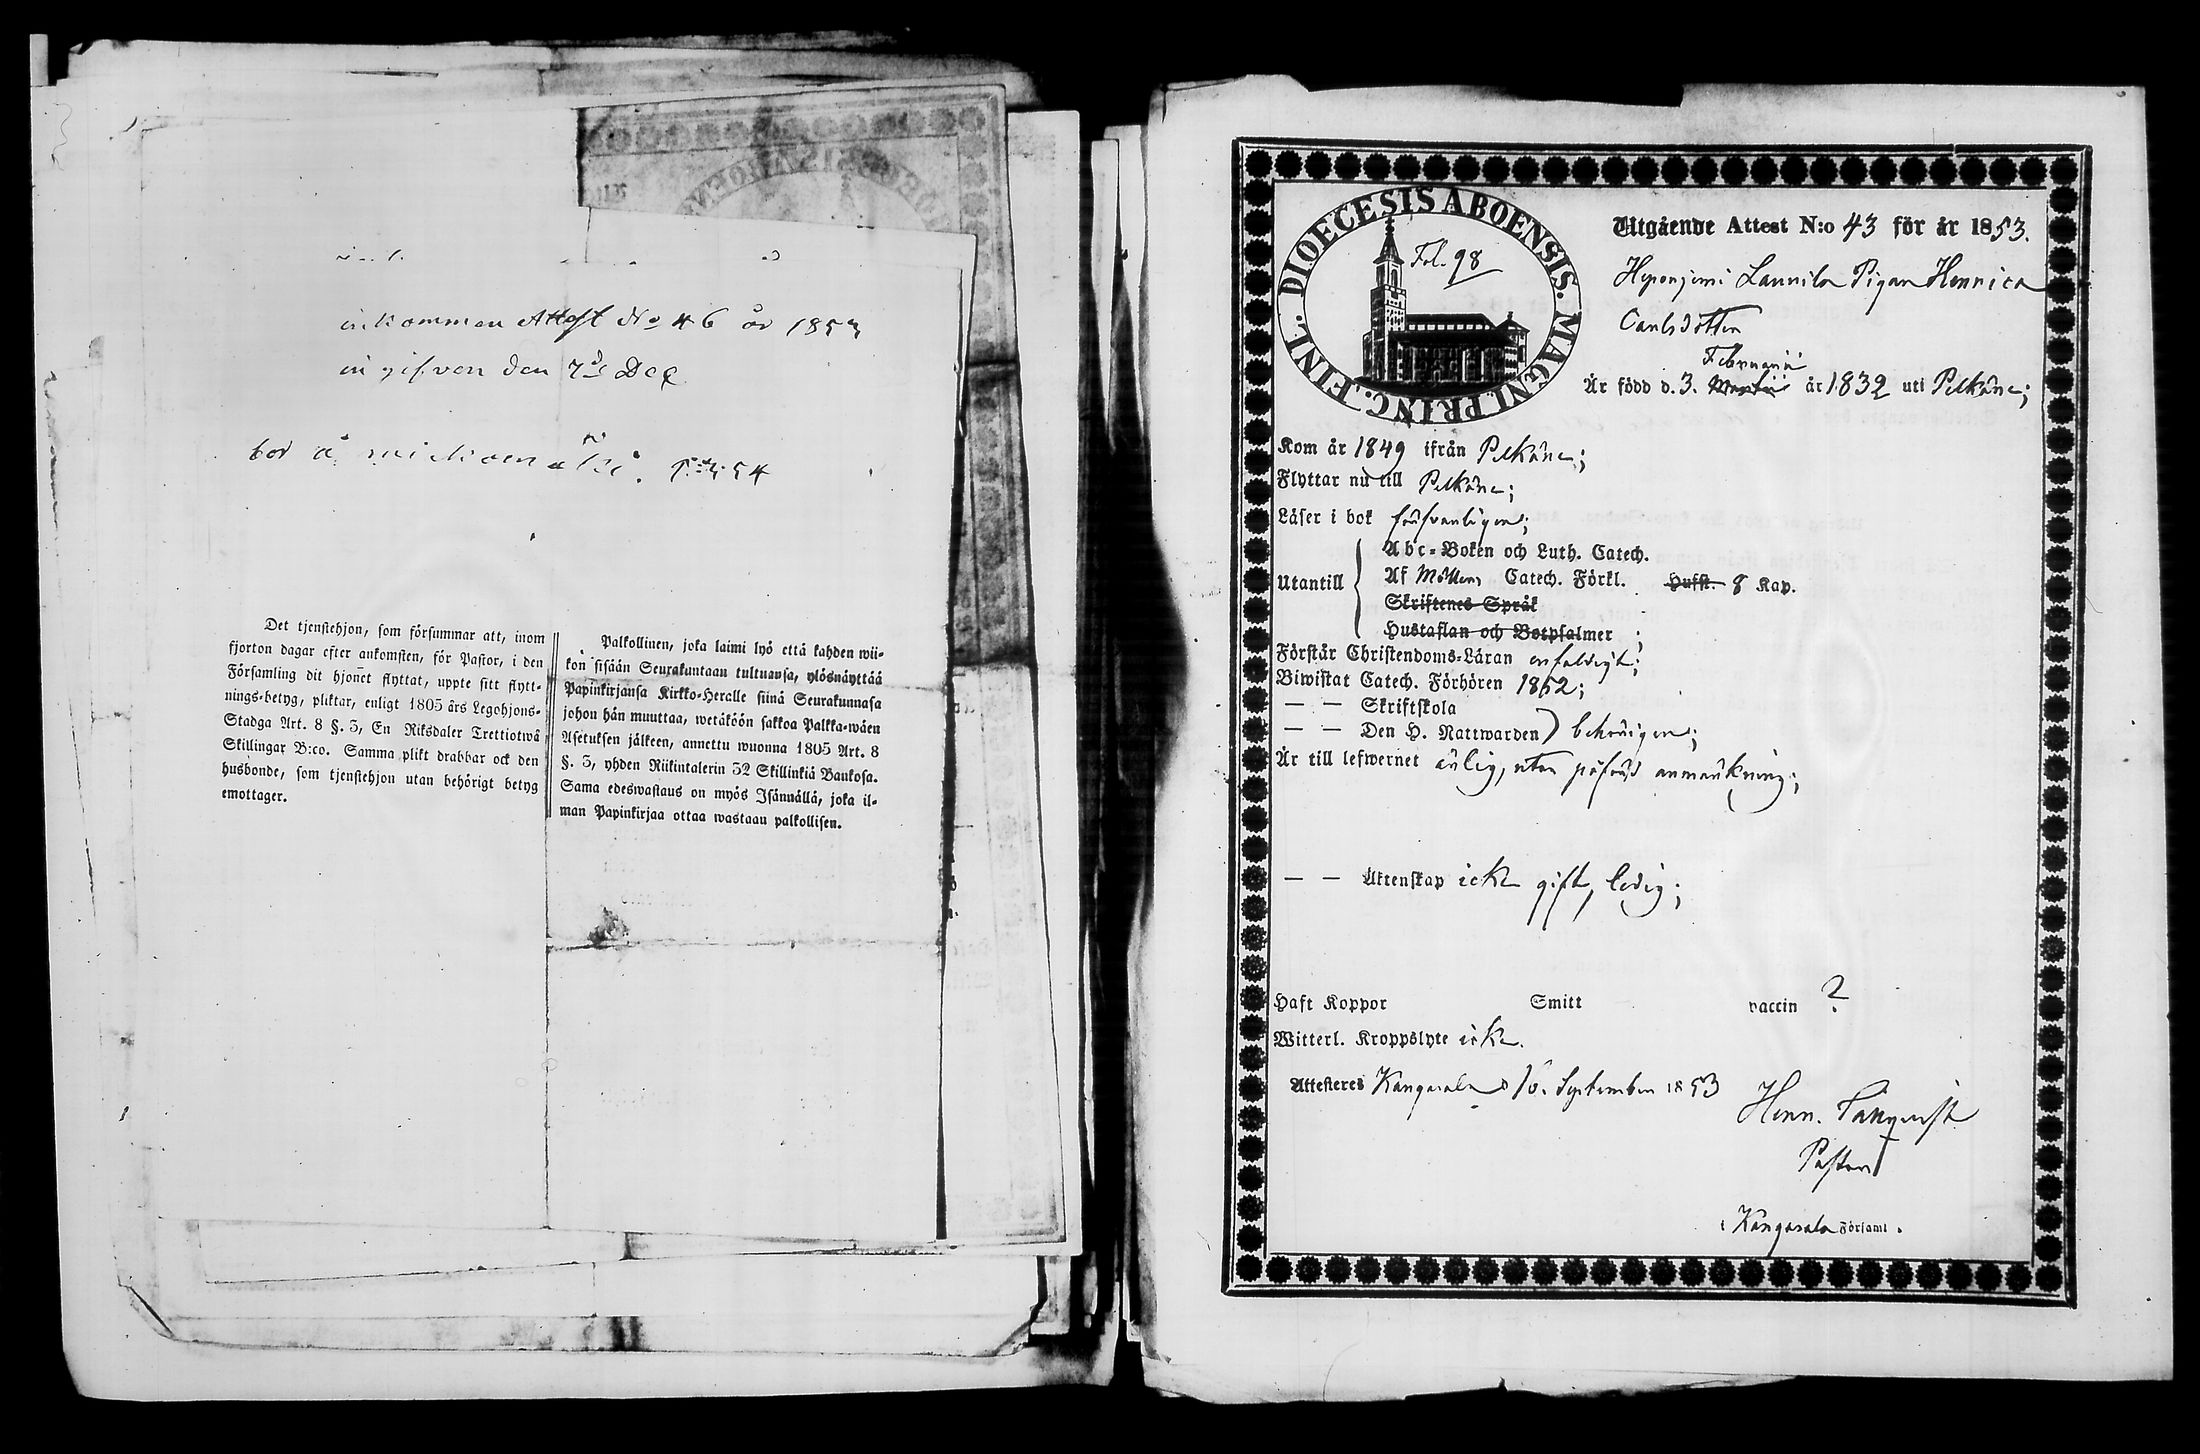 inkommen Attest No 46 år 1853
ingifven den 7de Dec
bor å
Det tjenstehjon, som försummar att, inom
fjorton dagar efter ankomsten, för Pastor, i den
Församling dit hjonet flyttat, uppte sitt flytt-
nings-betyg, pliktar, enligt 1805 års Legohjons-
Stadga Art. 8 §. 3, En Riksdaler Trettiotwå
Skillingar B:co. Samma plikt drabbar ock den
husbonde, som tjenstehjon utan behörigt betyg
emottager.
Palkollinen, joka laimi lyö että kahden wii-
kon sisään Seurakuntaan tultuansa, ylösnäyttää
Papinkirjansa Kirkko-Heralle siinä Seurakunnasa
johon hän muuttaa, wetäköön sakkoa Palkka-wäen
Asetuksen jälkeen, annettu wuonna 1805 Art. 8
§. 3, yhden Riikintalerin 32 Skillinkiä Bankosa.
Sama edeswastaus on myös Isännällä, joka il-
man Papinkirjaa ottaa wastaan palkollisen.
DIOECESIS ABOENSIS. MAGNI PRINC. FINL.
Fol. 98
Utgående Attest N:o 43 för år 1853.
Heponjemi Laurila Pigan Henrica
Carlsdotter
Februarii
Är född d. 3. Martii år 1832 uti Pelkäne;
Kom år 1849 ifrån Pelkäne;
Flyttar nu till Pelkäne;
Läser i bok försvarligen;
Abc-Boken och Luth. Catech.
Utantill Af Möllers Catech. Förkl. Hufst. 8 Kap.
Skriftenes Språk
Hustaflan och Botpsalmer ;
Förstår Christendoms-Läran enfaldigt;
Biwistat Catech. Förhören 1852;
— — Skriftskola
— — Den H. Nattwarden) behörigen;
Är till lefwernet ärlig, utan påförd anmärkning;
— — Äktenskap icke gift, ledig;
Haft Koppor Smitt vaccin ?
Witterl. Kroppslyte icke.
Attesteres Kangasala d 16. September 1853
Henr.
Pastor
i Kangasala Församl.